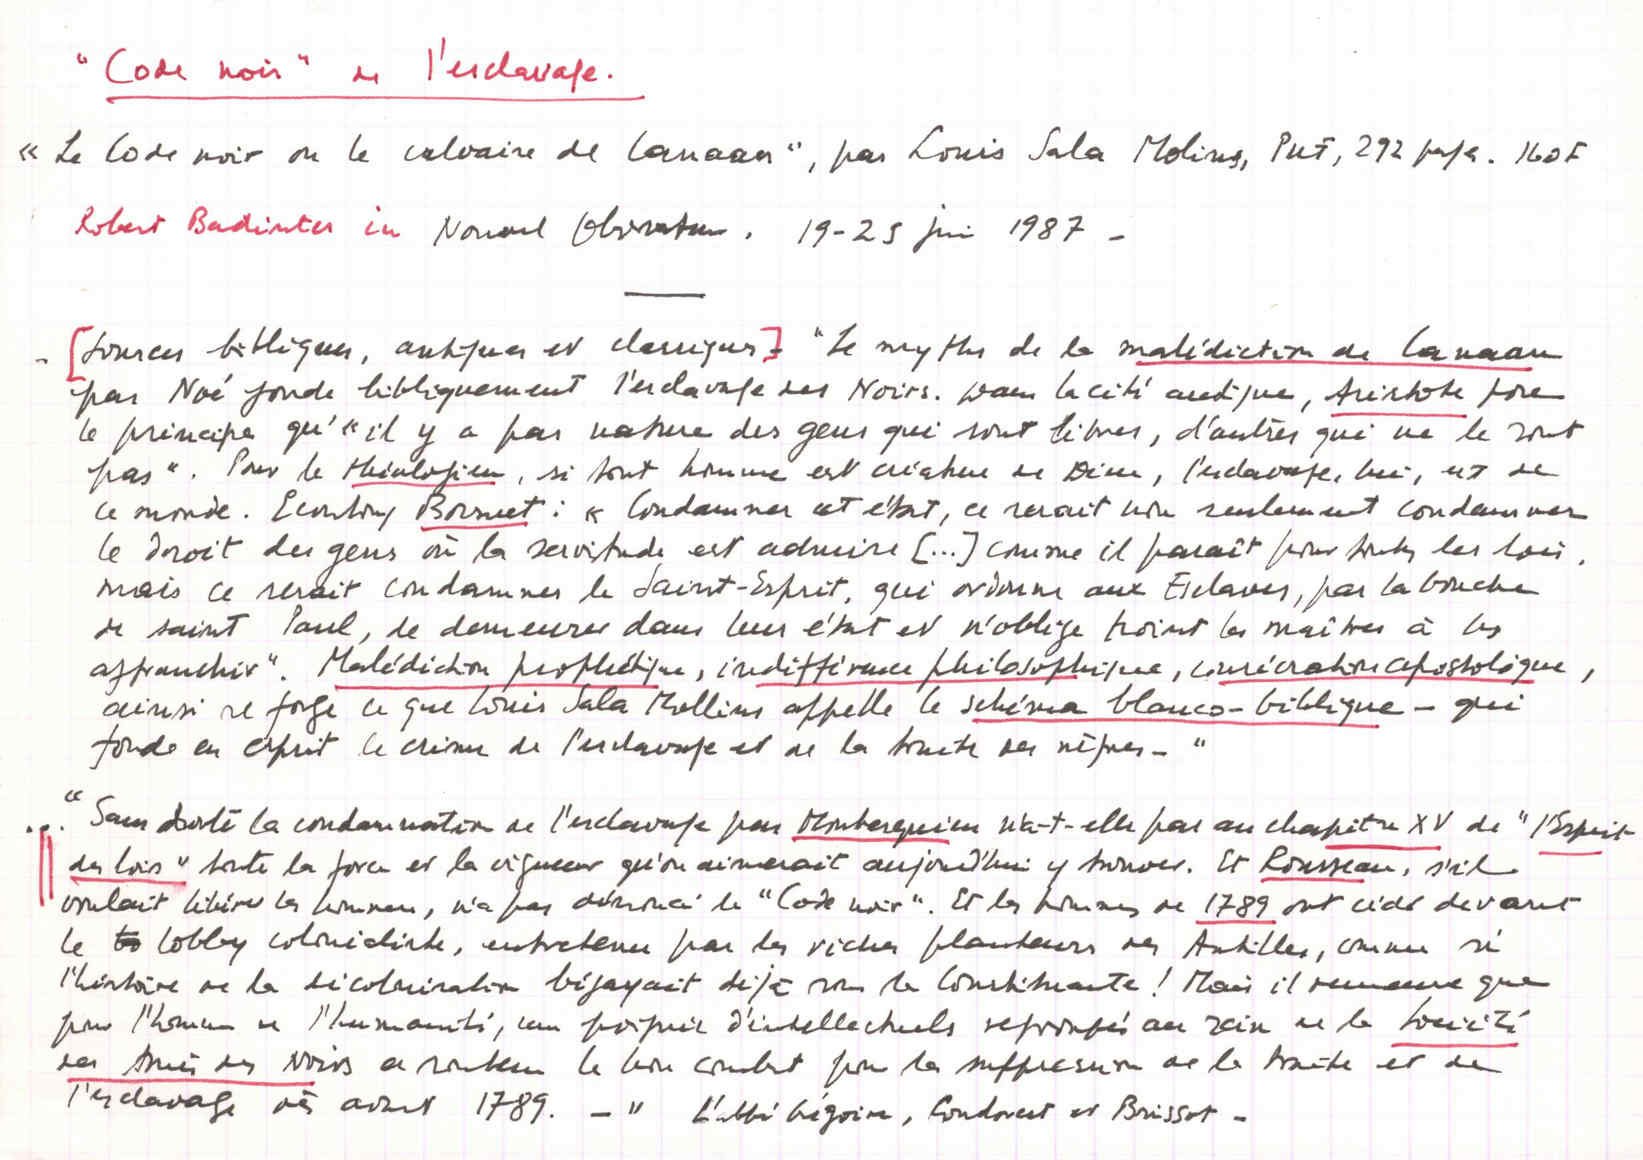 "Code noir" de l'esclavage.
« Le Code noir ou le calvaire de Canaan", par Louis Sala Molins, PUF, 292 pages. 160F
Robert Badinter in Nouvel Observateur. 19-25 juin 1987 -
- [Sources bibliques, antiques et classiques] - "Le mythe de la malédiction de Canaan
par Noé fonde bibliquement l'esclavage des Noirs. Dans la cité antique, Aristote pose
le principe qu'"il y a par nature des gens qui sont libres, d'autres qui ne le sont
pas". Pour le théologien, si tout homme est créature de Dieu, l'esclavage, lui, est de
ce monde. Ecoutons Bossuet : « Condamner cet état, ce serait non seulement condamner
le droit des gens où la servitude est admise [...] comme il paraît pour toutes les lois,
mais ce serait condamner le Saint-Esprit, qui ordonne aux Esclaves, par la bouche
de saint Paul, de demeurer dans leur état et n'oblige point les maîtres à les
affranchir". Malédiction prophétique, indifférence philosophique, consécration apostolique,
ainsi se forge ce que Louis Sala Mollins appelle le schéma blanco-biblique - qui
fonde en esprit le crime de l'esclavage et de la traite des nègres - "
... "Sans doute la condamnation de l'esclavage par Montesquieu n'a-t-elle pas au chapitre XV de "l'Esprit
des lois" toute la force et la vigueur qu'on aimerait aujourd'hui y trouver. Et Rousseau, s'il
voulait libérer les hommes, n'a pas dénoncé le "Code noir". Et les hommes de 1789 ont cédé devant
le lobby colonialiste, entretenu par les riches planteurs des Antilles, comme si
l'histoire de la décolonisation bégayait déjà sous la Constituante ! Mais il demeure que
pour l'honneur de l'humanité, une poignée d'intellectuels regroupés au sein de la Société
des Amis des Noirs a soutenu le bon combat pour la suppression de la traite et de
l'esclavage dès avant 1789. - " L'abbé Grégoire, Condorcet et Brissot -